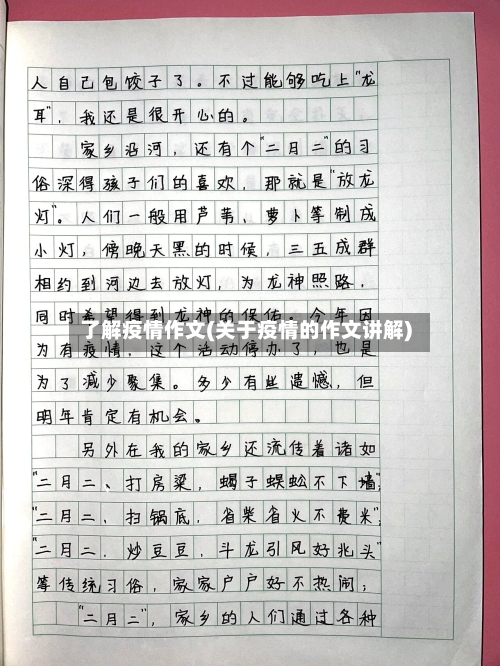 人自己包饺子了。不过能够吃上"龙
耳"，我还是很开心的。
家乡沿河，还有个"二月二"的习
俗深得孩子们的喜欢，那就是"放龙
灯"。人们一般用芦苇、萝卜等制成
小灯，傍晚天黑的时候，三五成群
相约到河边去放灯，为龙神照路，
同时希望得到龙神的保佑。今年因
了解疫情作文(关于疫情的作文讲解)
为有疫情，这个活动停办了，也是
为了减少聚集。多少有些遗憾，但
明年肯定有机会。
另外在我的家乡还流传着诸如
"二月二、打房梁，蝎子蜈蚣不下墙"；
"二月二、扫锅底，省柴省火不费米"；
"二月二．炒豆豆，斗龙引风好兆头"
等传统习俗，家家户户好不热闹；
"二月二"，家乡的人们通过各种